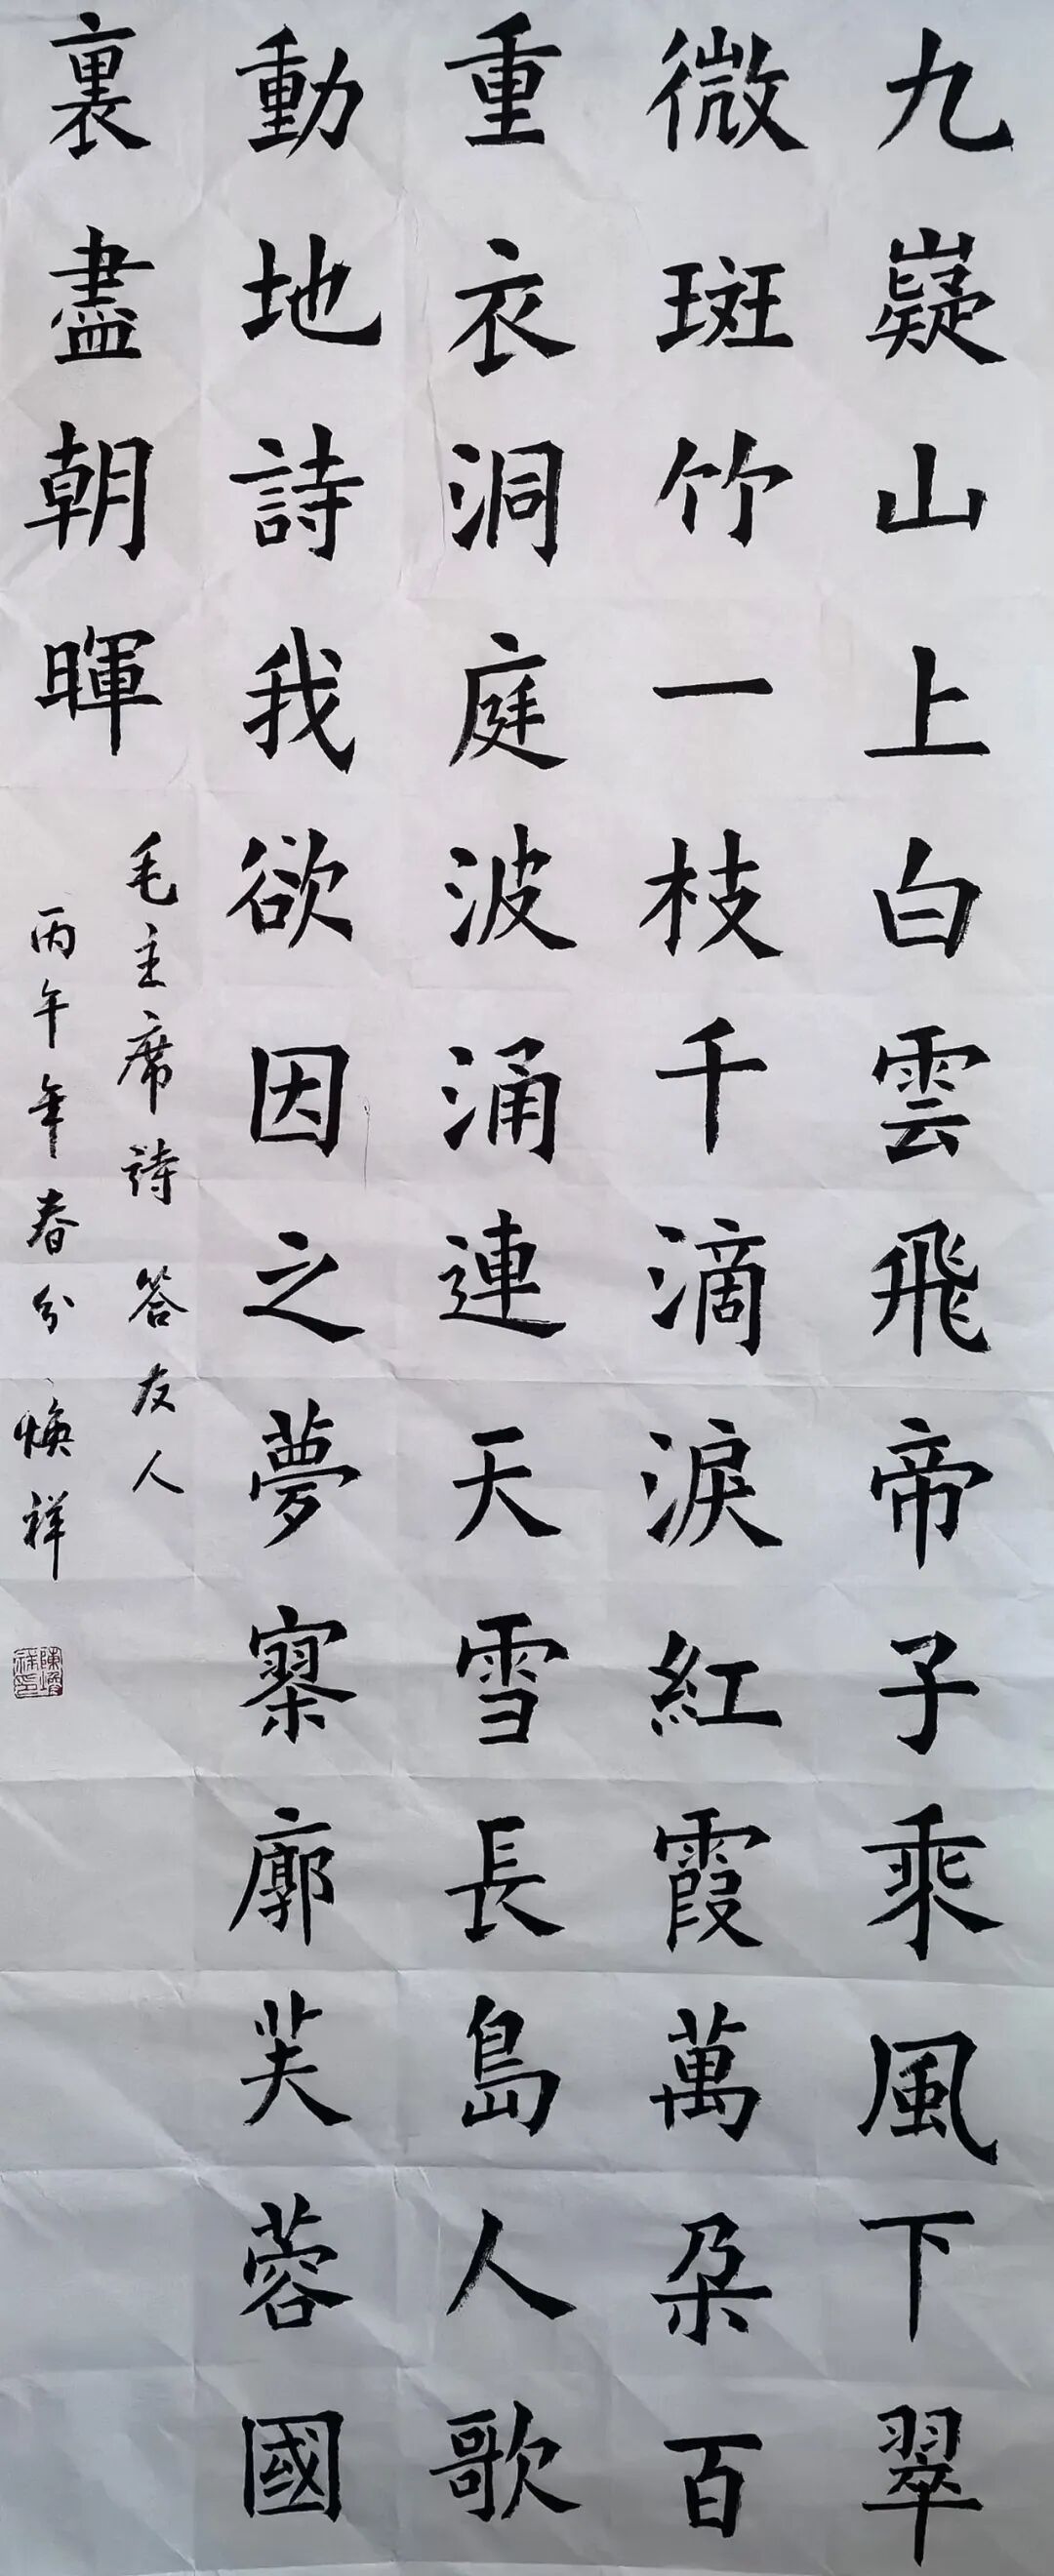 九嶷山上白雲飛帝子乘風下翠
微斑竹一枝千滴淚紅霞萬朵百
重衣洞庭波涌連天雪長島人歌
動地詩我欲因之夢寥廓芙蓉國
裏盡朝暉
毛主席詩答友人
丙午年春分煥祥